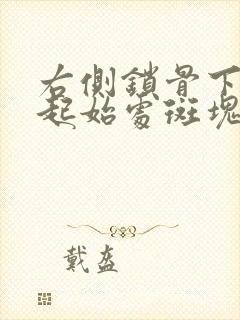 右側鎖骨下
起始處斑塊
戴盔